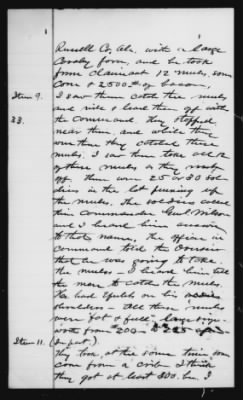 Russell Co, Ala. with a large
Cavalry force, and he took
from claimant 12 mules, some
Corn & 2500 # of bacon,
Item 9. I saw them catch the mules
and ride & lead them off with
23. the command, they stopped
near there, and while they
were there they catched these
mules, I saw them take all
of these mules as they
off there were 25 or 30 sol-
diers in the lot
the mules. The soldiers called
their Commander Genl Wilson
and I heard him answer
to that name, the officer in
command told the
that he was going to take
the mules — I heard him tell
the men to catch the mules.
He had Epulets on his
shoulders — All these mules
were fat & full
worth from $200 — to 225
Item 11. (In part.)
They took, at the same time some
corn from a crib I think
they got at least 300. bu I